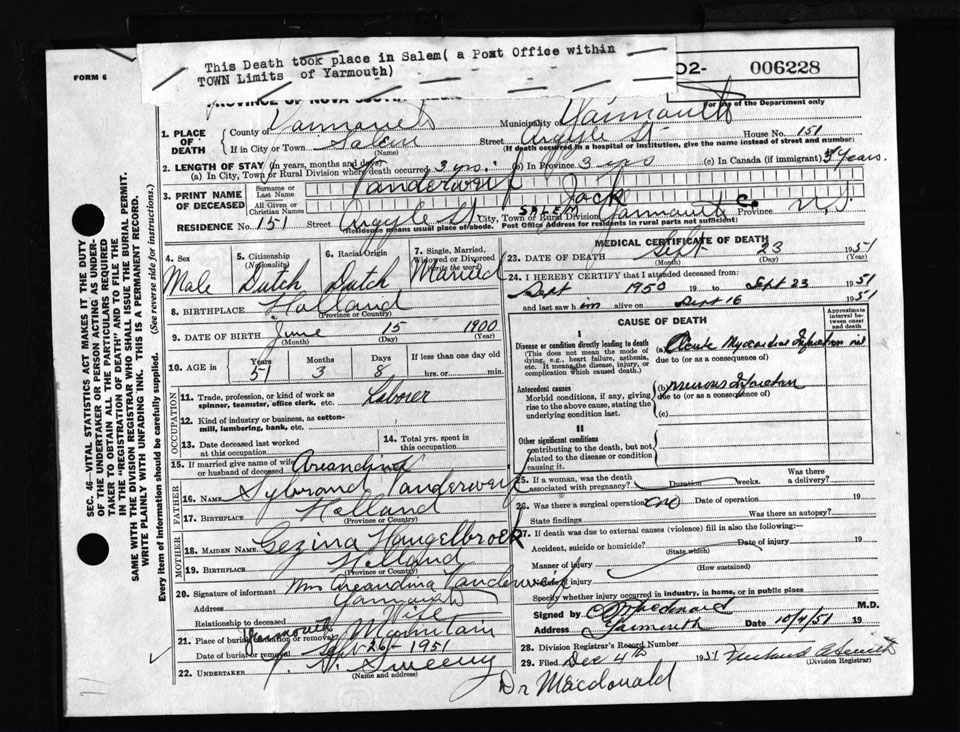 This Death took place in Salem( a Post Office within
TOWN Limits of Yarmouth)
FORM 6
02- 006228
For use of the Department only
PROVINCE OF NOVA
1. PLACE OF DEATH
County of Yarmouth Municipality of Yarmouth
If in City or Town Salem (Name) Street Argyle St House No. 151
(If death occurred in a hospital or institution, give name instead of street and number)
2. LENGTH OF STAY (in years, months and days)
(a) In City, Town or Rural Division where death occurred 3 yrs. (b) In Province 3 yrs (c) In Canada (if immigrant) 3 years.
3. PRINT NAME OF DECEASED
Surname or Last Name Vanderwerf
All Given or Christian Names Jack
RESIDENCE No. 151 Street Argyle St City, Town or Rural Division SALEM Yarmouth Co. Province N.S.
(Residence means usual place of abode. Post Office Address for residents in rural parts not sufficient)
4. Sex Male
5. Citizenship (Nationality) Dutch
6. Racial Origin Dutch
7. Single, Married, Widowed or Divorced (Write the word) Married
8. BIRTHPLACE Holland
(Province or Country)
9. DATE OF BIRTH June 15 1900
(Month) (Day) (Year)
10. AGE in Years 51 Months 3 Days 8 If less than one day old hrs. or min.
OCCUPATION
11. Trade, profession, or kind of work as spinner, teamster, office clerk, etc. Laborer
12. Kind of industry or business, as cotton-mill, lumbering, bank, etc.
13. Date deceased last worked at this occupation
14. Total yrs. spent in this occupation
15. If married give name of wife or husband of deceased
FATHER
16. Name Sybrand Vanderwerf
17. Birthplace Holland
(Province or Country)
MOTHER
18. Maiden Name Gezina
19. Birthplace Holland
(Province or Country)
20. Signature of informant Mrs Vanderwerf
Address Yarmouth
Relationship to deceased Wife
21. Place of burial, cremation or removal Yarmouth Mountain
Date of burial or removal Sept-26-1951
22. UNDERTAKER V. Sweeny
(Name and address)
MEDICAL CERTIFICATE OF DEATH
23. DATE OF DEATH Sept 23 1951
(Month) (Day) (Year)
24. I HEREBY CERTIFY that I attended deceased from:
Sept 1950 19 to Sept 23 1951
and last saw him alive on Sept 16 1951
CAUSE OF DEATH
Approximate interval between onset and death
I
Disease or condition directly leading to death
(This does not mean the mode of dying, e.g., heart failure, asthenia, etc. It means the disease, injury, or complication which caused death.)
(a) Acute Myocardial Infarction
due to (or as a consequence of)
Antecedent causes
Morbid conditions, if any, giving rise to the above cause, stating the underlying condition last.
(b) previous infarction
due to (or as a consequence of)
(c)
II
Other significant conditions
contributing to the death, but not related to the disease or condition causing it.
25. If a woman, was the death associated with pregnancy? Duration weeks. Was there a delivery?
26. Was there a surgical operation? no Date of operation 19
State findings Was there an autopsy?
27. If death was due to external causes (violence) fill in also the following:—
Accident, suicide or homicide? Date of injury 19
(State which)
Manner of injury
(How sustained)
Nature of injury
Specify whether injury occurred in industry, in home, or in public place
Signed by Macdonald M.D.
Address Yarmouth Date 10/4/51 19
28. Division Registrar's Record Number
29. Filed Dec 4th 1951
(Division Registrar)
Dr Macdonald
SEC. 46—VITAL STATISTICS ACT MAKES IT THE DUTY
OF THE UNDERTAKER OR PERSON ACTING AS UNDER-
TAKER TO OBTAIN ALL THE PARTICULARS REQUIRED
IN THE "REGISTRATION OF DEATH" AND TO FILE THE
SAME WITH THE DIVISION REGISTRAR WHO SHALL ISSUE THE BURIAL PERMIT.
WRITE PLAINLY WITH UNFADING INK. THIS IS A PERMANENT RECORD.
Every item of information should be carefully supplied. (See reverse side for instructions.)
11